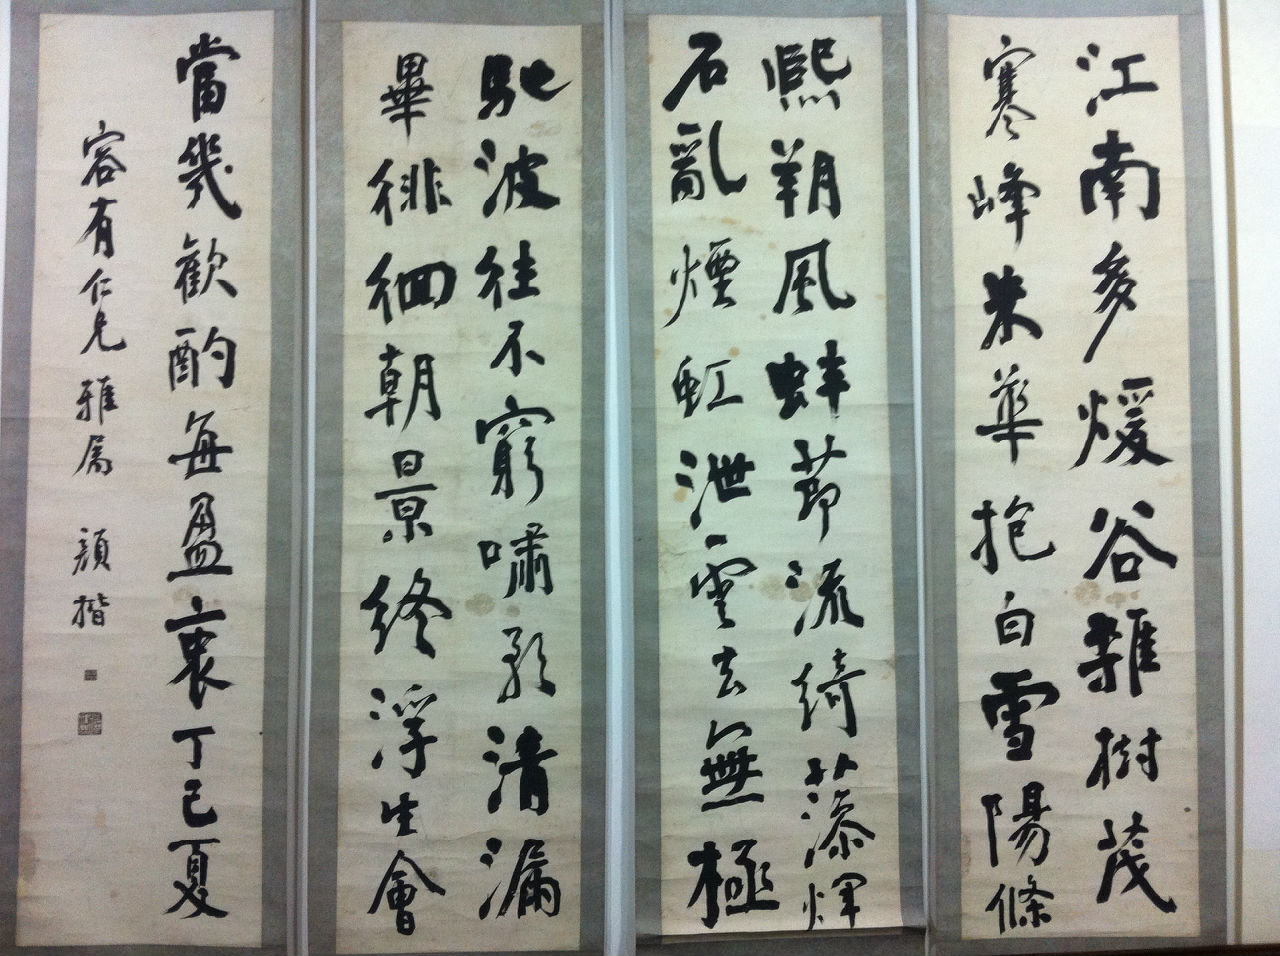 江南多煖谷雜樹茂
寒峰朱華抱白雪陽條
熙朔風蚌節流綺藻煇
石亂煙虹泄雲去無極
馳波往不窮嘯歌清漏
畢徘徊朝景終浮生會
當幾歡酌每盈衷丁巳夏
容有仁兄雅属 顏楷